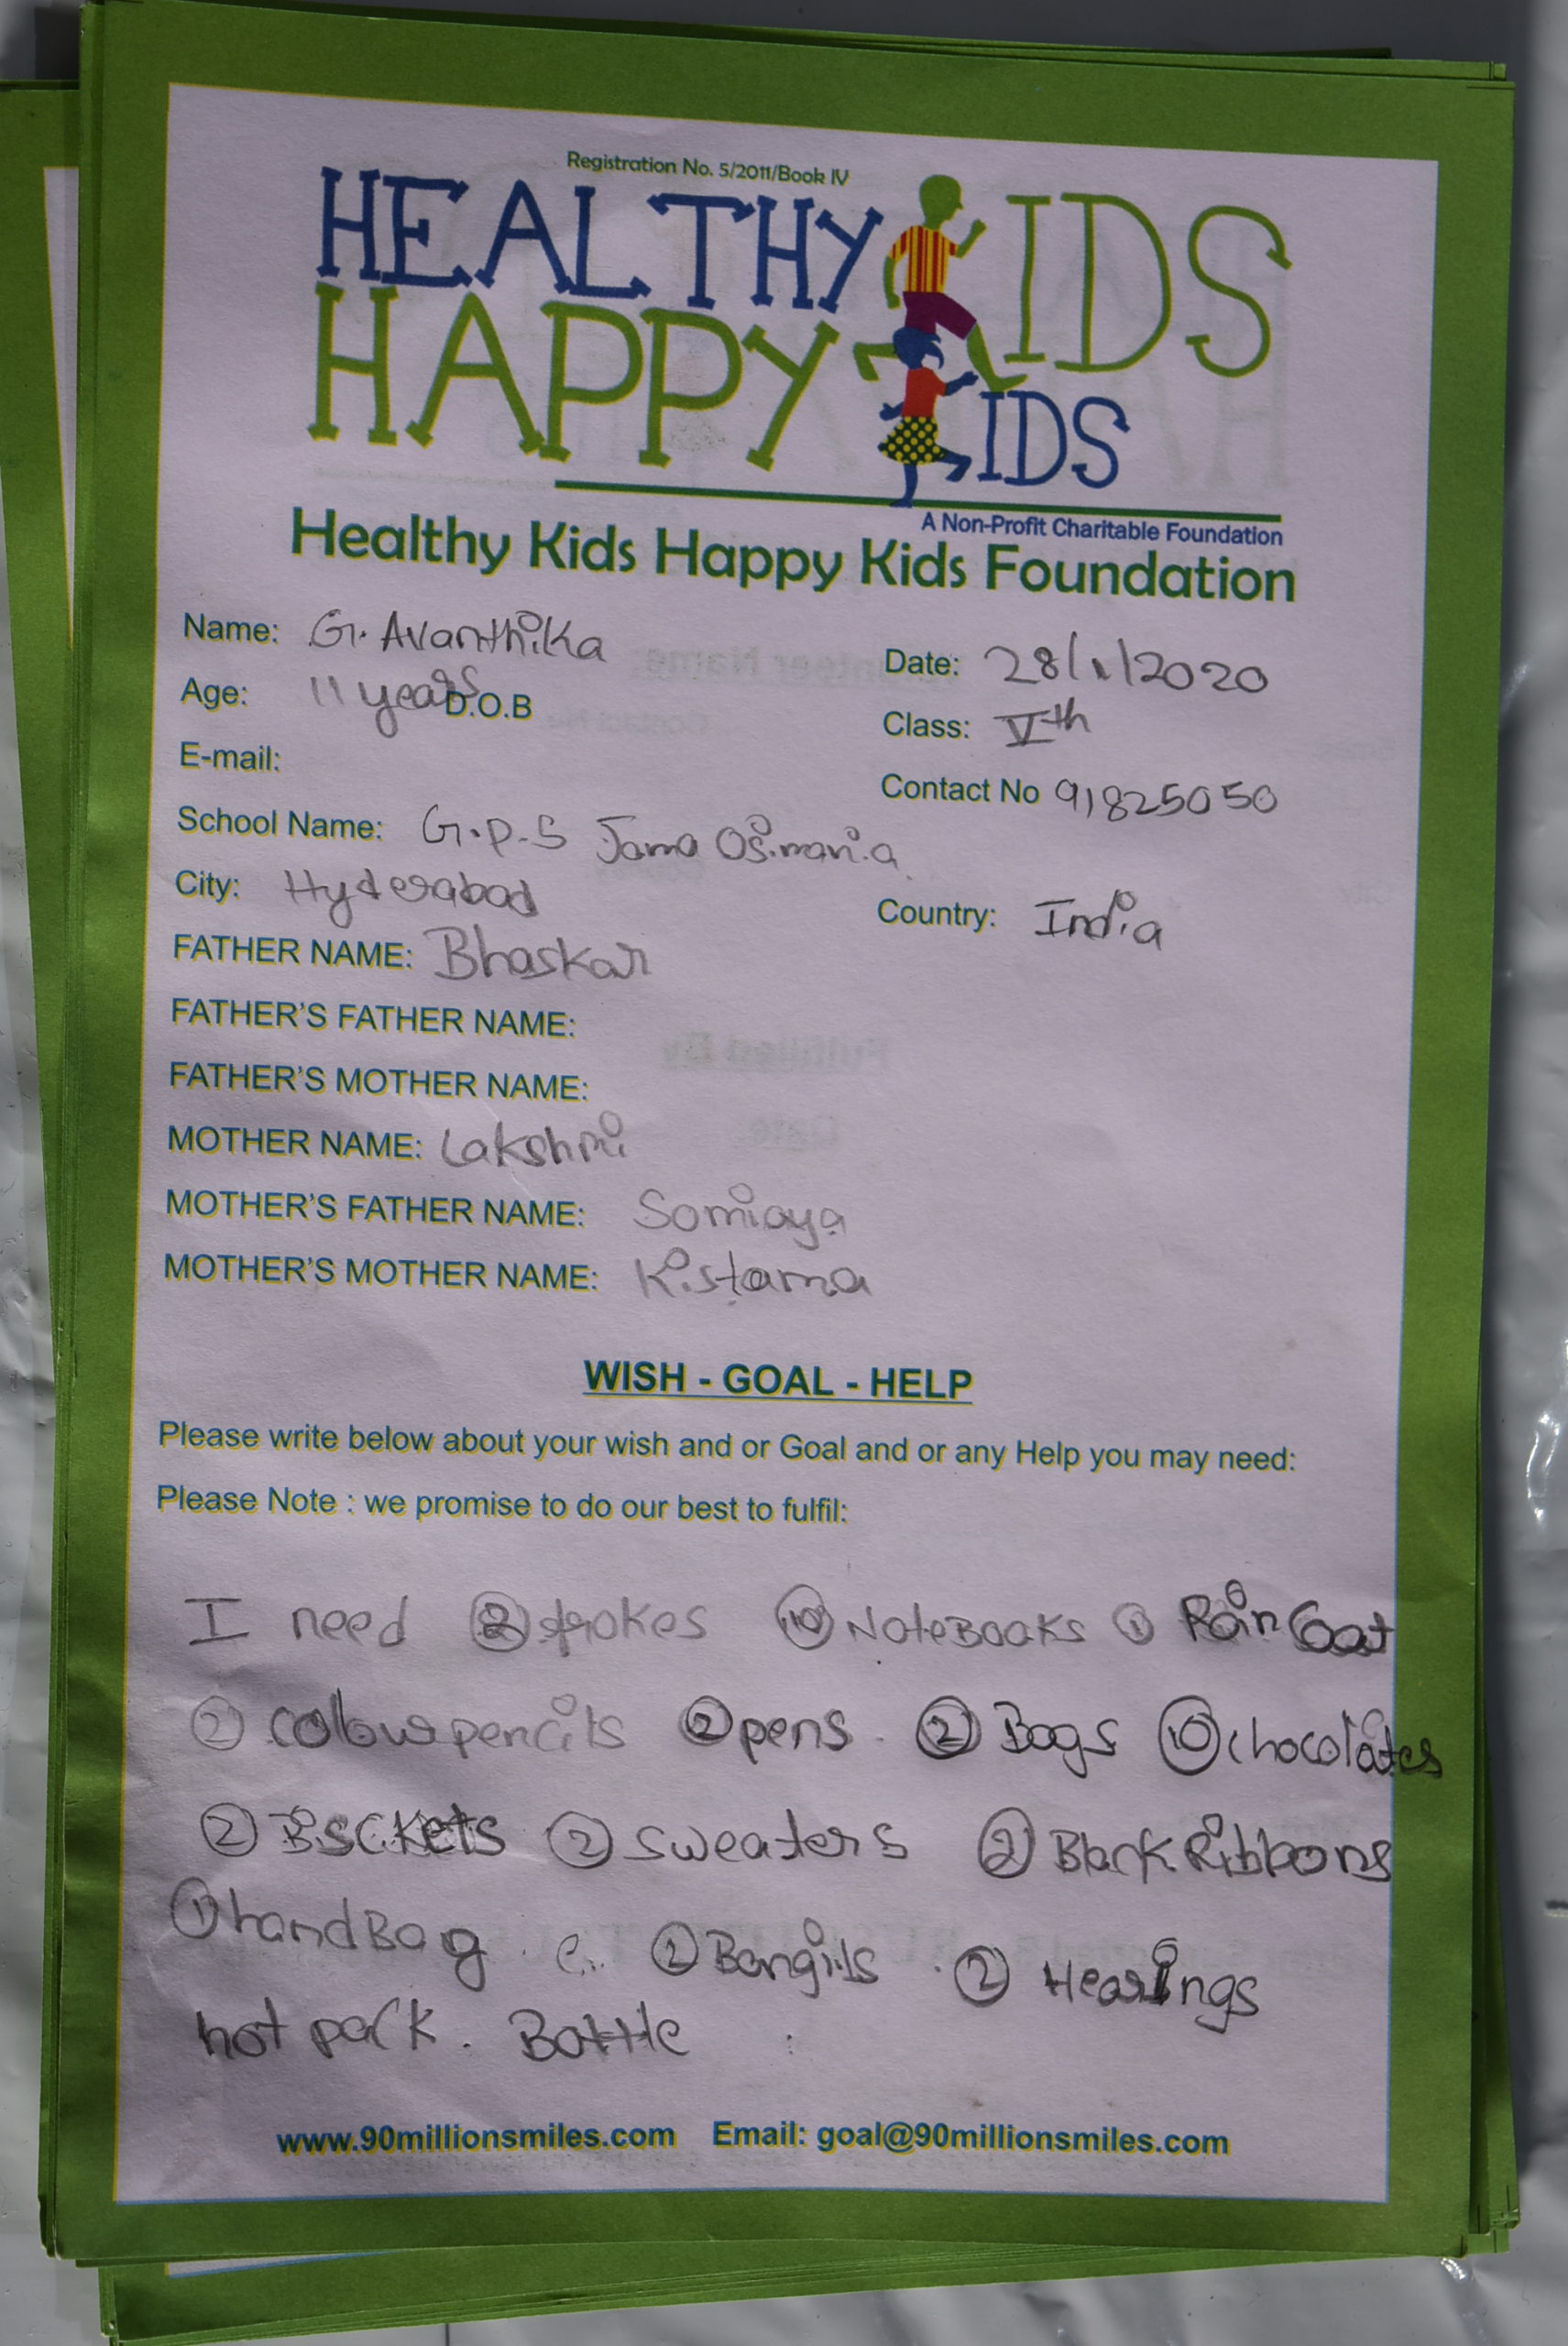 Registration No. 5/2011/Book IV
HEALTHY KIDS
HAPPY KIDS
A Non-Profit Charitable Foundation
Healthy Kids Happy Kids Foundation
Name: G. Avanthika
Date: 28/1/2020
Age: 11 years D.O.B
Class: Vth
E-mail:
Contact No 91825050
School Name: G.P.S Jama Osimania
City: Hyderabad
Country: India
FATHER NAME: Bhaskar
FATHER'S FATHER NAME:
FATHER'S MOTHER NAME:
MOTHER NAME: Lakshmi
MOTHER'S FATHER NAME: Somiaya
MOTHER'S MOTHER NAME: Kistama
WISH - GOAL - HELP
Please write below about your wish and or Goal and or any Help you may need:
Please Note : we promise to do our best to fulfil:
I need 2 frokes 10 NoteBooks 1 Rain Coat
2 colour pencils 2 pens 2 Bags 10 chocolates
2 Bisckets 2 sweaters 2 Black Ribbons
1 handBag 2 Bangils 2 Hearings
hot pack. Bottle
www.90millionsmiles.com Email: goal@90millionsmiles.com